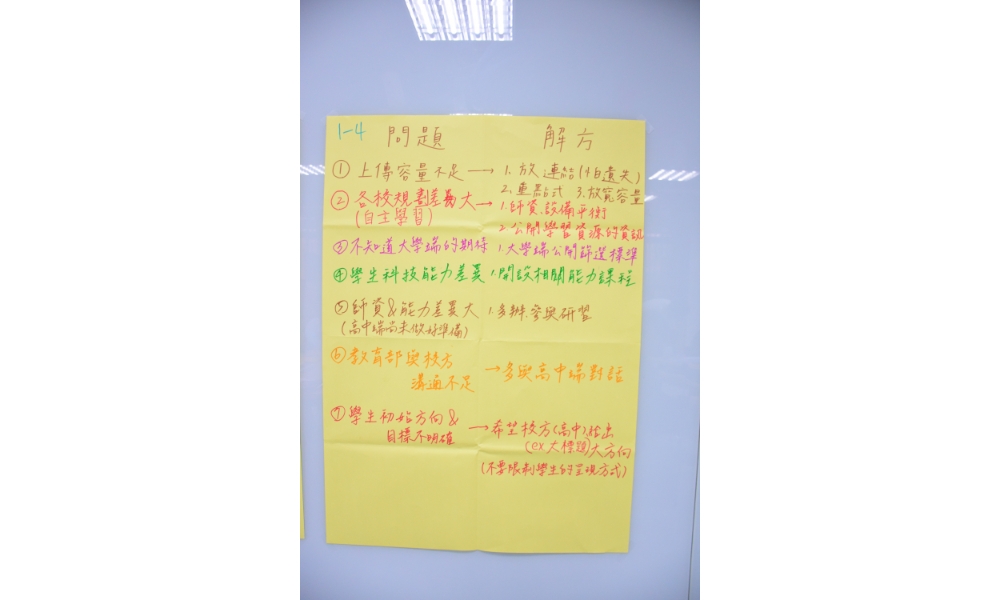 1-4 問題 解方
① 上傳容量不足 → 1. 放連結(怕遺失)
2. 車款式 3. 放寬容量
② 各校規劃差異大 → 1. 師資、設備平衡
(自主學習)
2. 公開學習資源的資訊
③ 不知道大學端的期待 1. 大學端公開篩選標準
④ 學生科技能力差異 1. 開設相關能力課程
⑤ 師資&能力差異大 1. 多辦、參與研習
(高中端尚未做好準備)
⑥ 教育部與校方
溝通不足 → 多與高中端對話
⑦ 學生初始方向&
目標不明確 → 希望校方(高中)給出
(ex 大標題)大方向
(不要限制學生的呈現方式)